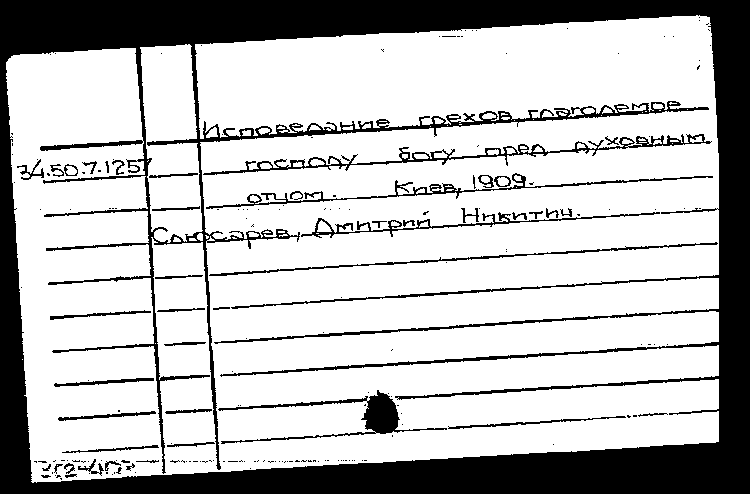 Исповедание грехов, глаголемое
34.50.7.1257 господу богу пред духовным
отцом. Киев, 1909.
Слюсарев, Дмитрий Никитич.